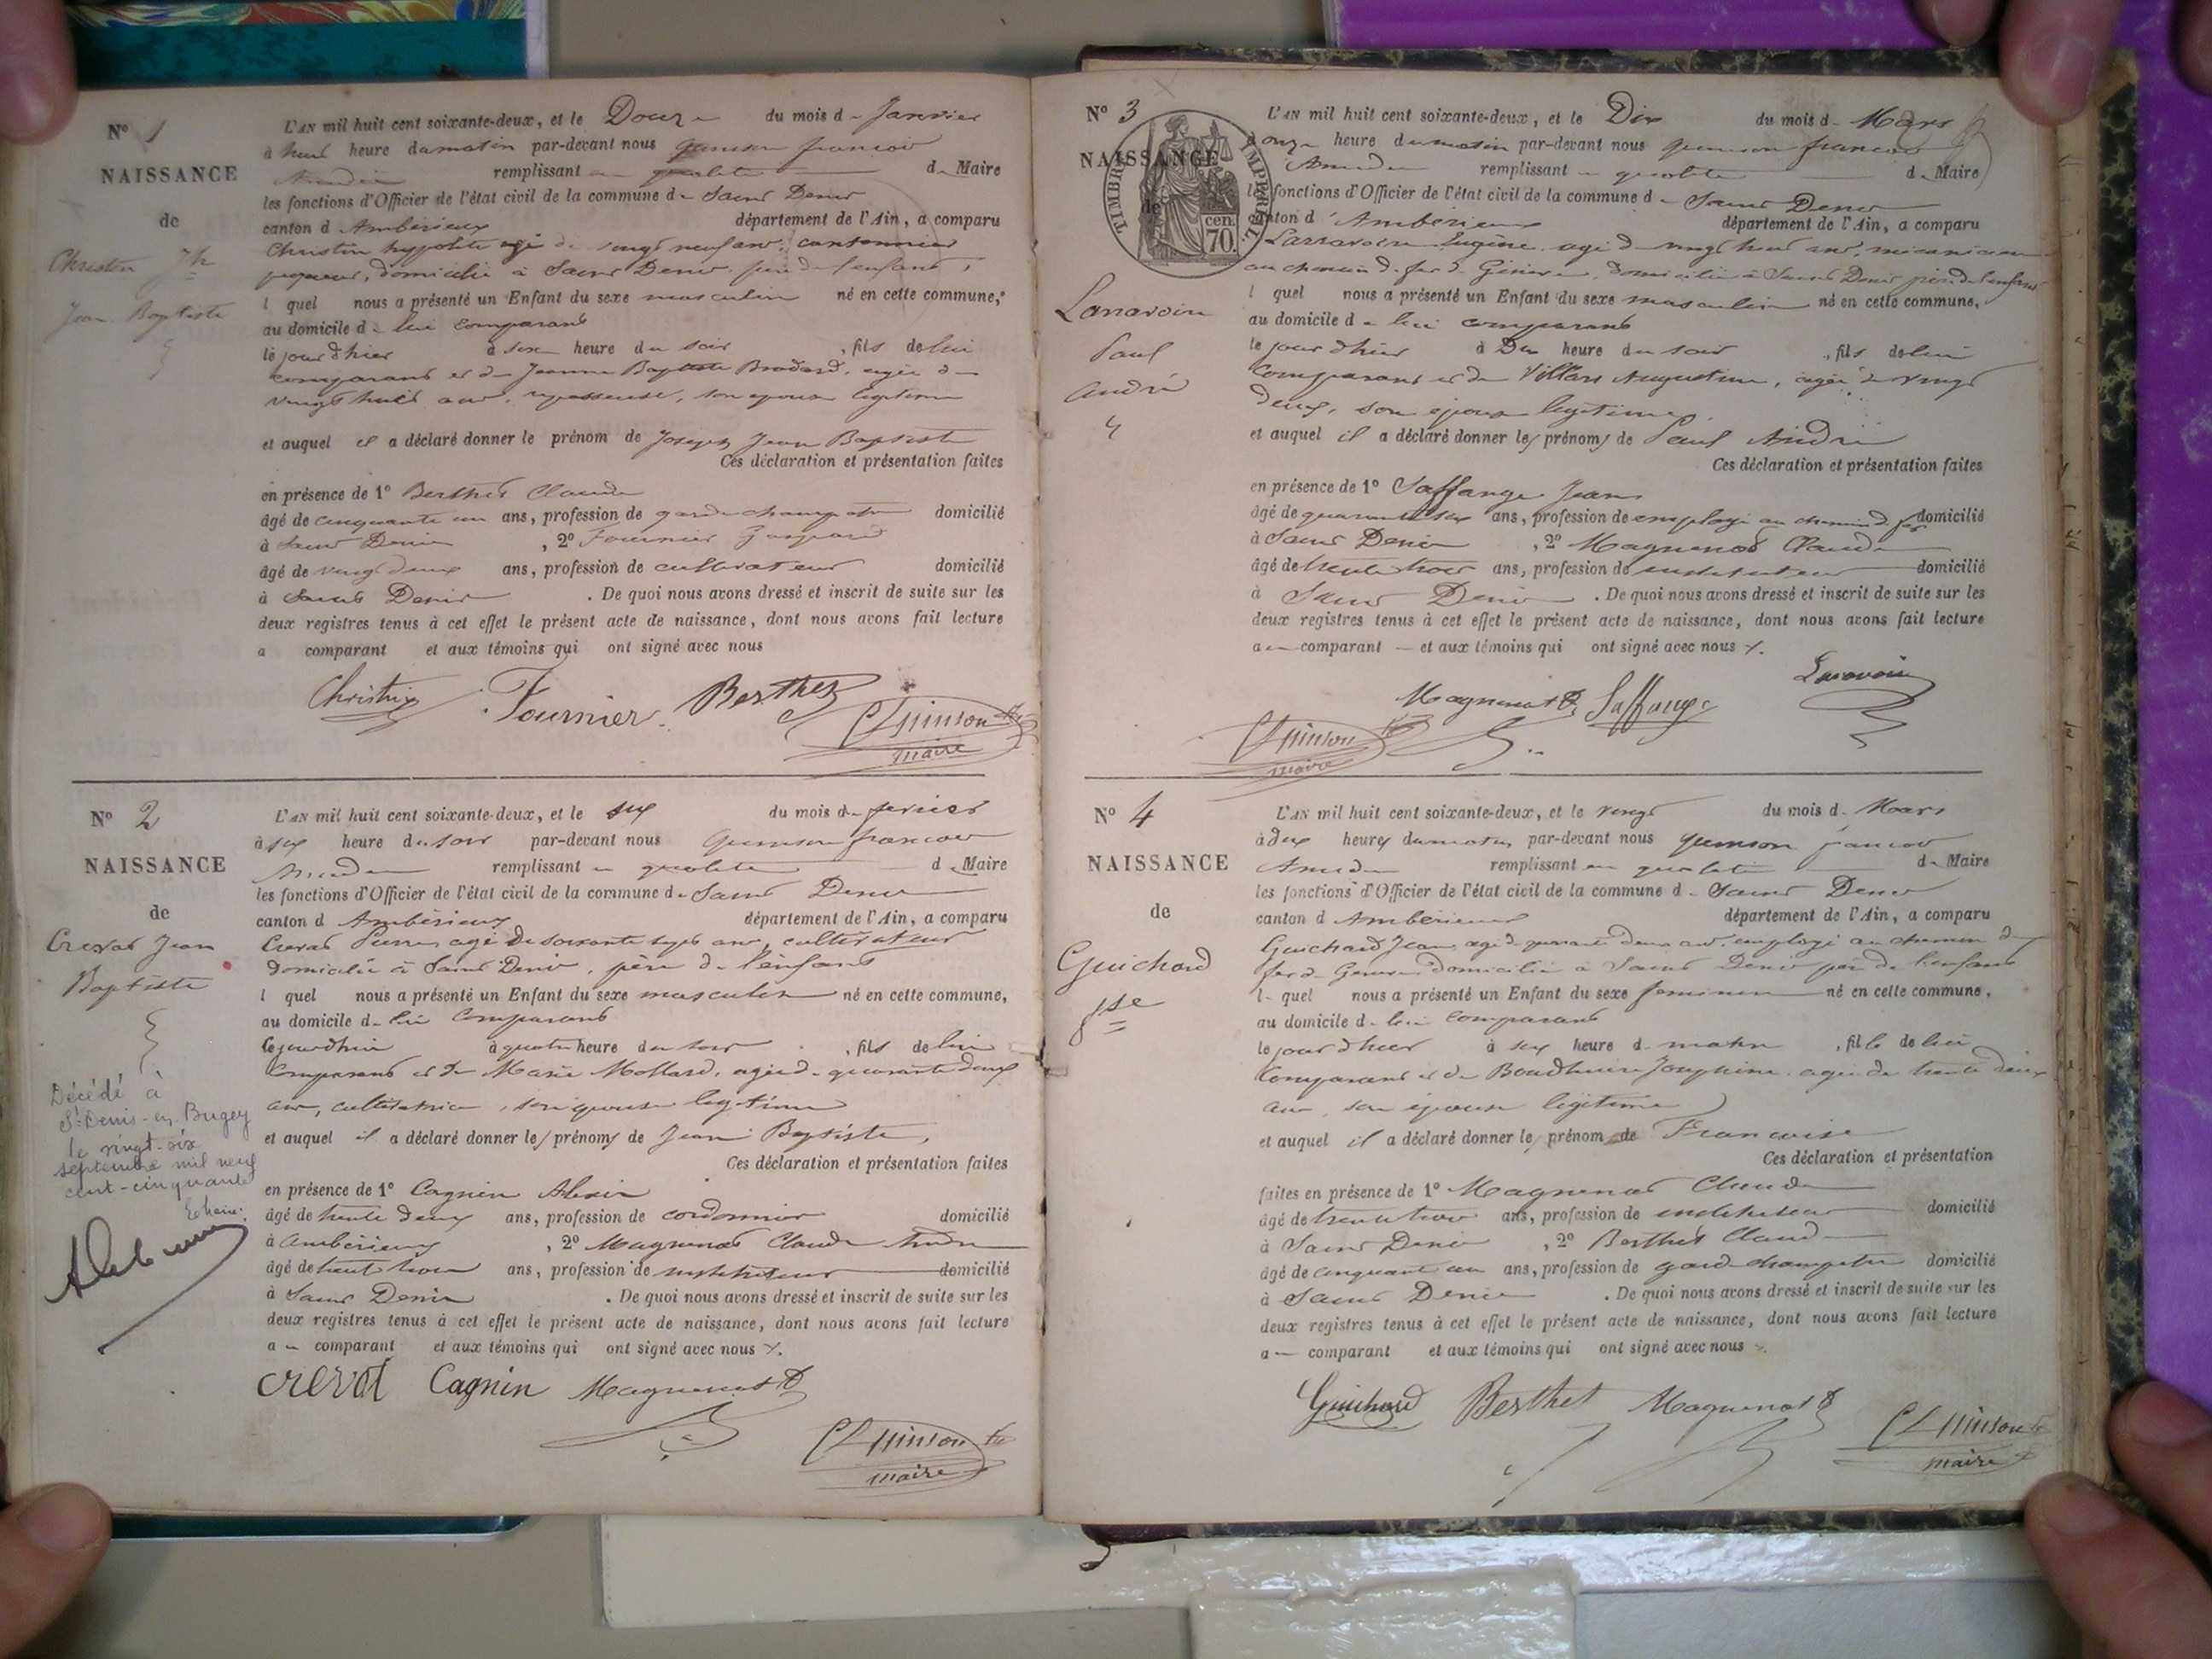 N° 1
NAISSANCE
de
Christin Jh
Jean Baptiste
L'AN mil huit cent soixante-deux, et le Douze du mois d Janvier
à huit heure du matin par-devant nous Quinson françois
Amédée remplissant en qualité de Maire
les fonctions d'Officier de l'état civil de la commune de Saint Denis
canton d'Ambérieux département de l'Ain, a comparu
Christin hyppolite agé de vingt neuf ans, cantonnier
piqueur, domicilié à Saint Denis, père de l'enfant,
l quel nous a présenté un Enfant du sexe masculin né en cette commune,
au domicile de lui comparant
le jour d'hier à six heure du soir, fils de lui
comparant et de Jeanne Baptiste Brodard, agée de
vingt huit ans, repasseuse, son epouse legitime
et auquel il a déclaré donner le prénom de Joseph Jean Baptiste
Ces déclaration et présentation faites
en présence de 1° Berthet Claude
âgé de cinquante un ans, profession de garde champetre domicilié
à Saint Denis, 2° Fournier Gaspard
âgé de vingt deux ans, profession de cultivateur domicilié
à Saint Denis. De quoi nous avons dressé et inscrit de suite sur les
deux registres tenus à cet effet le présent acte de naissance, dont nous avons fait lecture
a comparant et aux témoins qui ont signé avec nous
Christin Fournier Berthet
Quinson
maire
N° 2
NAISSANCE
de
Crevat Jean
Baptiste
Décédé à
St-Denis-en-Bugey
le vingt-six
septembre mil neuf
cent-cinquante
L'AN mil huit cent soixante-deux, et le six du mois de fevrier
à six heure du soir par-devant nous Quinson françois
Amédée remplissant en qualité de Maire
les fonctions d'Officier de l'état civil de la commune de Saint Denis
canton d Ambérieux département de l'Ain, a comparu
Crevat Pierre, agé de soixante sept ans, cultivateur
domicilié à Saint Denis, père de l'enfant
l quel nous a présenté un Enfant du sexe masculin né en cette commune,
au domicile de lui Comparant
le jourdhui à quatre heure du soir, fils de lui
Comparant et de Marie Mollard, agée de quarante deux
ans, cultivatrice, son epouse legitime
et auquel il a déclaré donner les prénoms de Jean Baptiste,
Ces déclaration et présentation faites
en présence de 1° Cagnin Alexis
âgé de trente deux ans, profession de cordonnier domicilié
à Ambérieux, 2° Magnenat Claude André
âgé de trente trois ans, profession de instituteur domicilié
à Saint Denis. De quoi nous avons dressé et inscrit de suite sur les
deux registres tenus à cet effet le présent acte de naissance, dont nous avons fait lecture
au comparant et aux témoins qui ont signé avec nous
crevat Cagnin Magnenat
Quinson
maire
N° 3
NAISSANCE
de
TIMBRE IMPERIAL
70 cen.
Larravoire
Paul
André
L'AN mil huit cent soixante-deux, et le Dix du mois de Mars
à onze heure du matin par-devant nous Quinson françois
Amédée remplissant en qualité de Maire
les fonctions d'Officier de l'état civil de la commune de Saint Denis
canton d'Ambérieux département de l'Ain, a comparu
Larravoire Eugène agé de vingt huit ans, mécanicien
au chemin de fer de Genève, domicilié à Saint Denis père de l'enfant
l quel nous a présenté un Enfant du sexe masculin né en cette commune,
au domicile de lui comparant
le jour d'hier à Dix heure du soir, fils de lui
Comparant et de Villars Augustine, agée de vingt
deux, son épouse legitime,
et auquel il a déclaré donner les prénoms de Paul André
Ces déclaration et présentation faites
en présence de 1° Saffange Jean
âgé de quarante six ans, profession de employé au chemin de fer domicilié
à Saint Denis, 2° Magnenat Claude
âgé de trente trois ans, profession de instituteur domicilié
à Saint Denis. De quoi nous avons dressé et inscrit de suite sur les
deux registres tenus à cet effet le présent acte de naissance, dont nous avons fait lecture
au comparant et aux témoins qui ont signé avec nous
Magnenat Saffange
Quinson
maire
N° 4
NAISSANCE
de
Guichard
fse
L'AN mil huit cent soixante-deux, et le vingt du mois de Mars
à dix heures du matin par-devant nous Quinson françois
Amédée remplissant en qualité de Maire
les fonctions d'Officier de l'état civil de la commune de Saint Denis
canton d Ambérieux département de l'Ain, a comparu
Guichard Jean, agé de quarante deux ans, employé au chemin de
fer de Genève domicilié à Saint Denis père de l'enfant
le quel nous a présenté un Enfant du sexe feminin né en cette commune,
au domicile de lui comparant
le jour d'hier à six heure du matin, fille de lui
Comparant et de Joséphine agée de trente deux
ans, son épouse légitime
et auquel il a déclaré donner le prénom de Francoise
Ces déclaration et présentation
faites en présence de 1° Magnenat Claude
âgé de trente trois ans, profession de instituteur domicilié
à Saint Denis, 2° Berthet Claude
âgé de cinquante un ans, profession de garde champetre domicilié
à Saint Denis. De quoi nous avons dressé et inscrit de suite sur les
deux registres tenus à cet effet le présent acte de naissance, dont nous avons fait lecture
au comparant et aux témoins qui ont signé avec nous
Guichard Berthet Magnenat
Quinson
maire